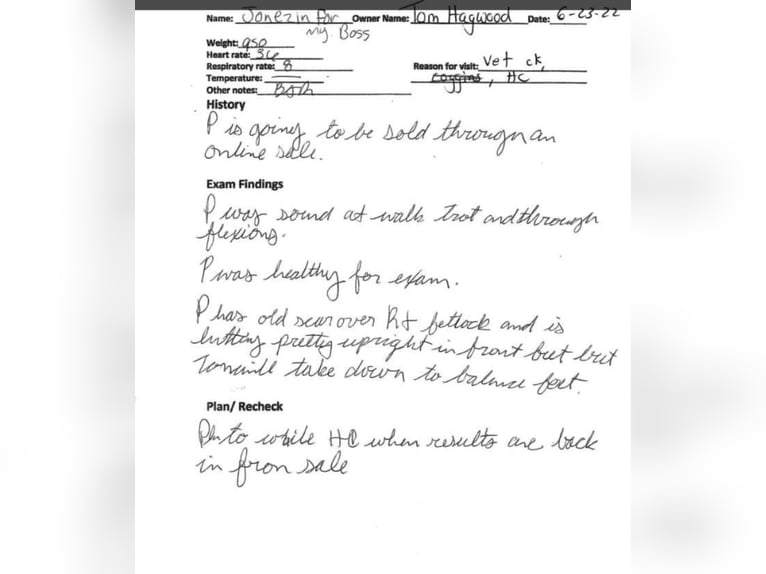 Name: Jonezin for Owner Name: Tom Hagwood Date: 6-23-22
My Boss
Weight: 950
Heart rate: 36
Respiratory rate: 8 Reason for visit: Vet ck,
Temperature: — coggins, HC
Other notes: BAR
History
P is going to be sold through an
online sale.
Exam Findings
P was sound at walk trot and through
flexions.
P was healthy for exam.
P has old scar over Rt fetlock and is
pretty upright in front feet but
Tom will take down to balance feet.
Plan/ Recheck
HC when results are back
in from sale